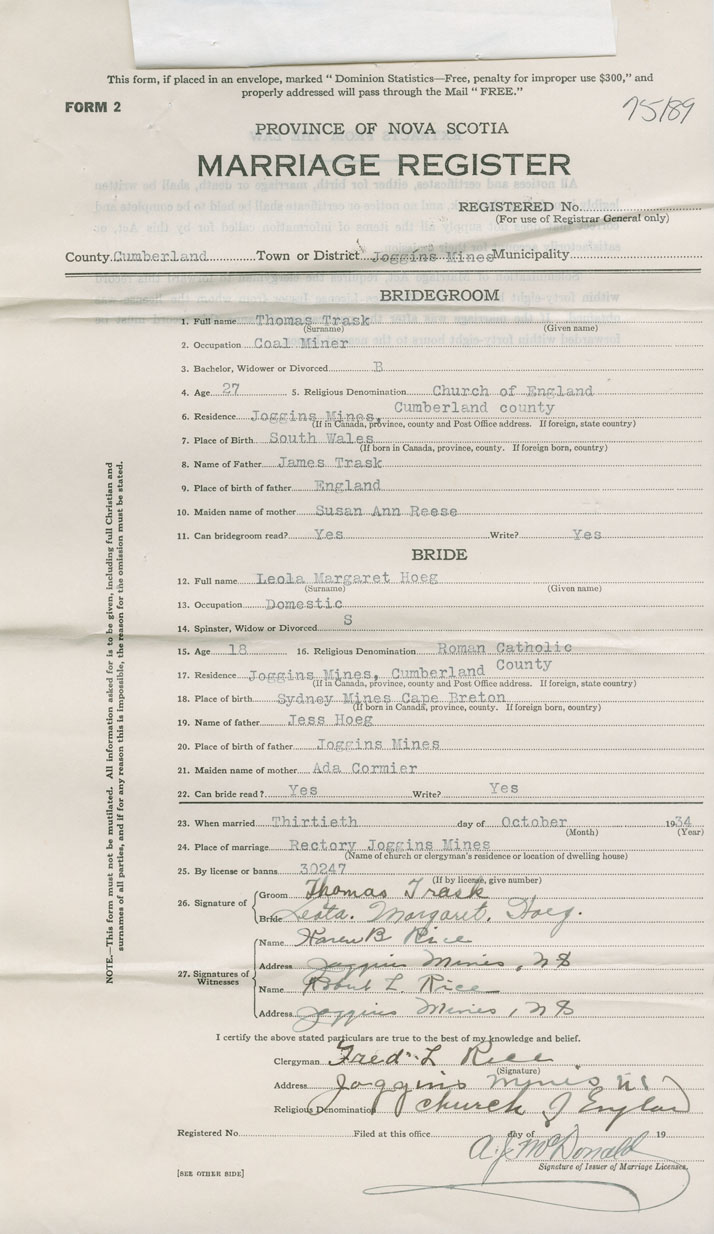 This form, if placed in an envelope, marked " Dominion Statistics—Free, penalty for improper use $300," and
properly addressed will pass through the Mail " FREE."
FORM 2
75/89
PROVINCE OF NOVA SCOTIA
MARRIAGE REGISTER
REGISTERED No.
(For use of Registrar General only)
County Cumberland Town or District Joggins Mines Municipality
BRIDEGROOM
1. Full name Thomas Trask
(Surname) (Given name)
2. Occupation Coal Miner
3. Bachelor, Widower or Divorced B
4. Age 27 5. Religious Denomination Church of England
6. Residence Joggins Mines, Cumberland county
(If in Canada, province, county and Post Office address. If foreign, state country)
7. Place of Birth South Wales
(If born in Canada, province, county. If foreign born, country)
8. Name of Father James Trask
9. Place of birth of father England
10. Maiden name of mother Susan Ann Reese
11. Can bridegroom read? Yes Write? Yes
BRIDE
12. Full name Leola Margaret Hoeg
(Surname) (Given name)
13. Occupation Domestic
14. Spinster, Widow or Divorced S
15. Age 18 16. Religious Denomination Roman Catholic
17. Residence Joggins Mines, Cumberland County
(If in Canada, province, county and Post Office address. If foreign, state country)
18. Place of birth Sydney Mines Cape Breton
(If born in Canada, province, county. If foreign born, country)
19. Name of father Jess Hoeg
20. Place of birth of father Joggins Mines
21. Maiden name of mother Ada Cormier
22. Can bride read? Yes Write? Yes
23. When married Thirtieth day of October 1934
(Month) (Year)
24. Place of marriage Rectory Joggins Mines
(Name of church or clergyman's residence or location of dwelling house)
25. By license or banns 30247
(If by license, give number)
26. Signature of Groom Thomas Trask
Bride Margaret. Hoeg.
27. Signatures of Witnesses
Name B Rice
Address Joggins Mines, NS
Name L. Rice
Address Joggins Mines, NS
I certify the above stated particulars are true to the best of my knowledge and belief.
Clergyman Fred L Rice
(Signature)
Address Joggins Mines
Religious Denomination Church of England
Registered No. Filed at this office day of 19
A. J. McDonald
Signature of Issuer of Marriage Licenses.
[SEE OTHER SIDE]
NOTE.—This form must not be mutilated. All information asked for is to be given, including full Christian and
surnames of all parties, and if for any reason this is impossible, the reason for the omission must be stated.